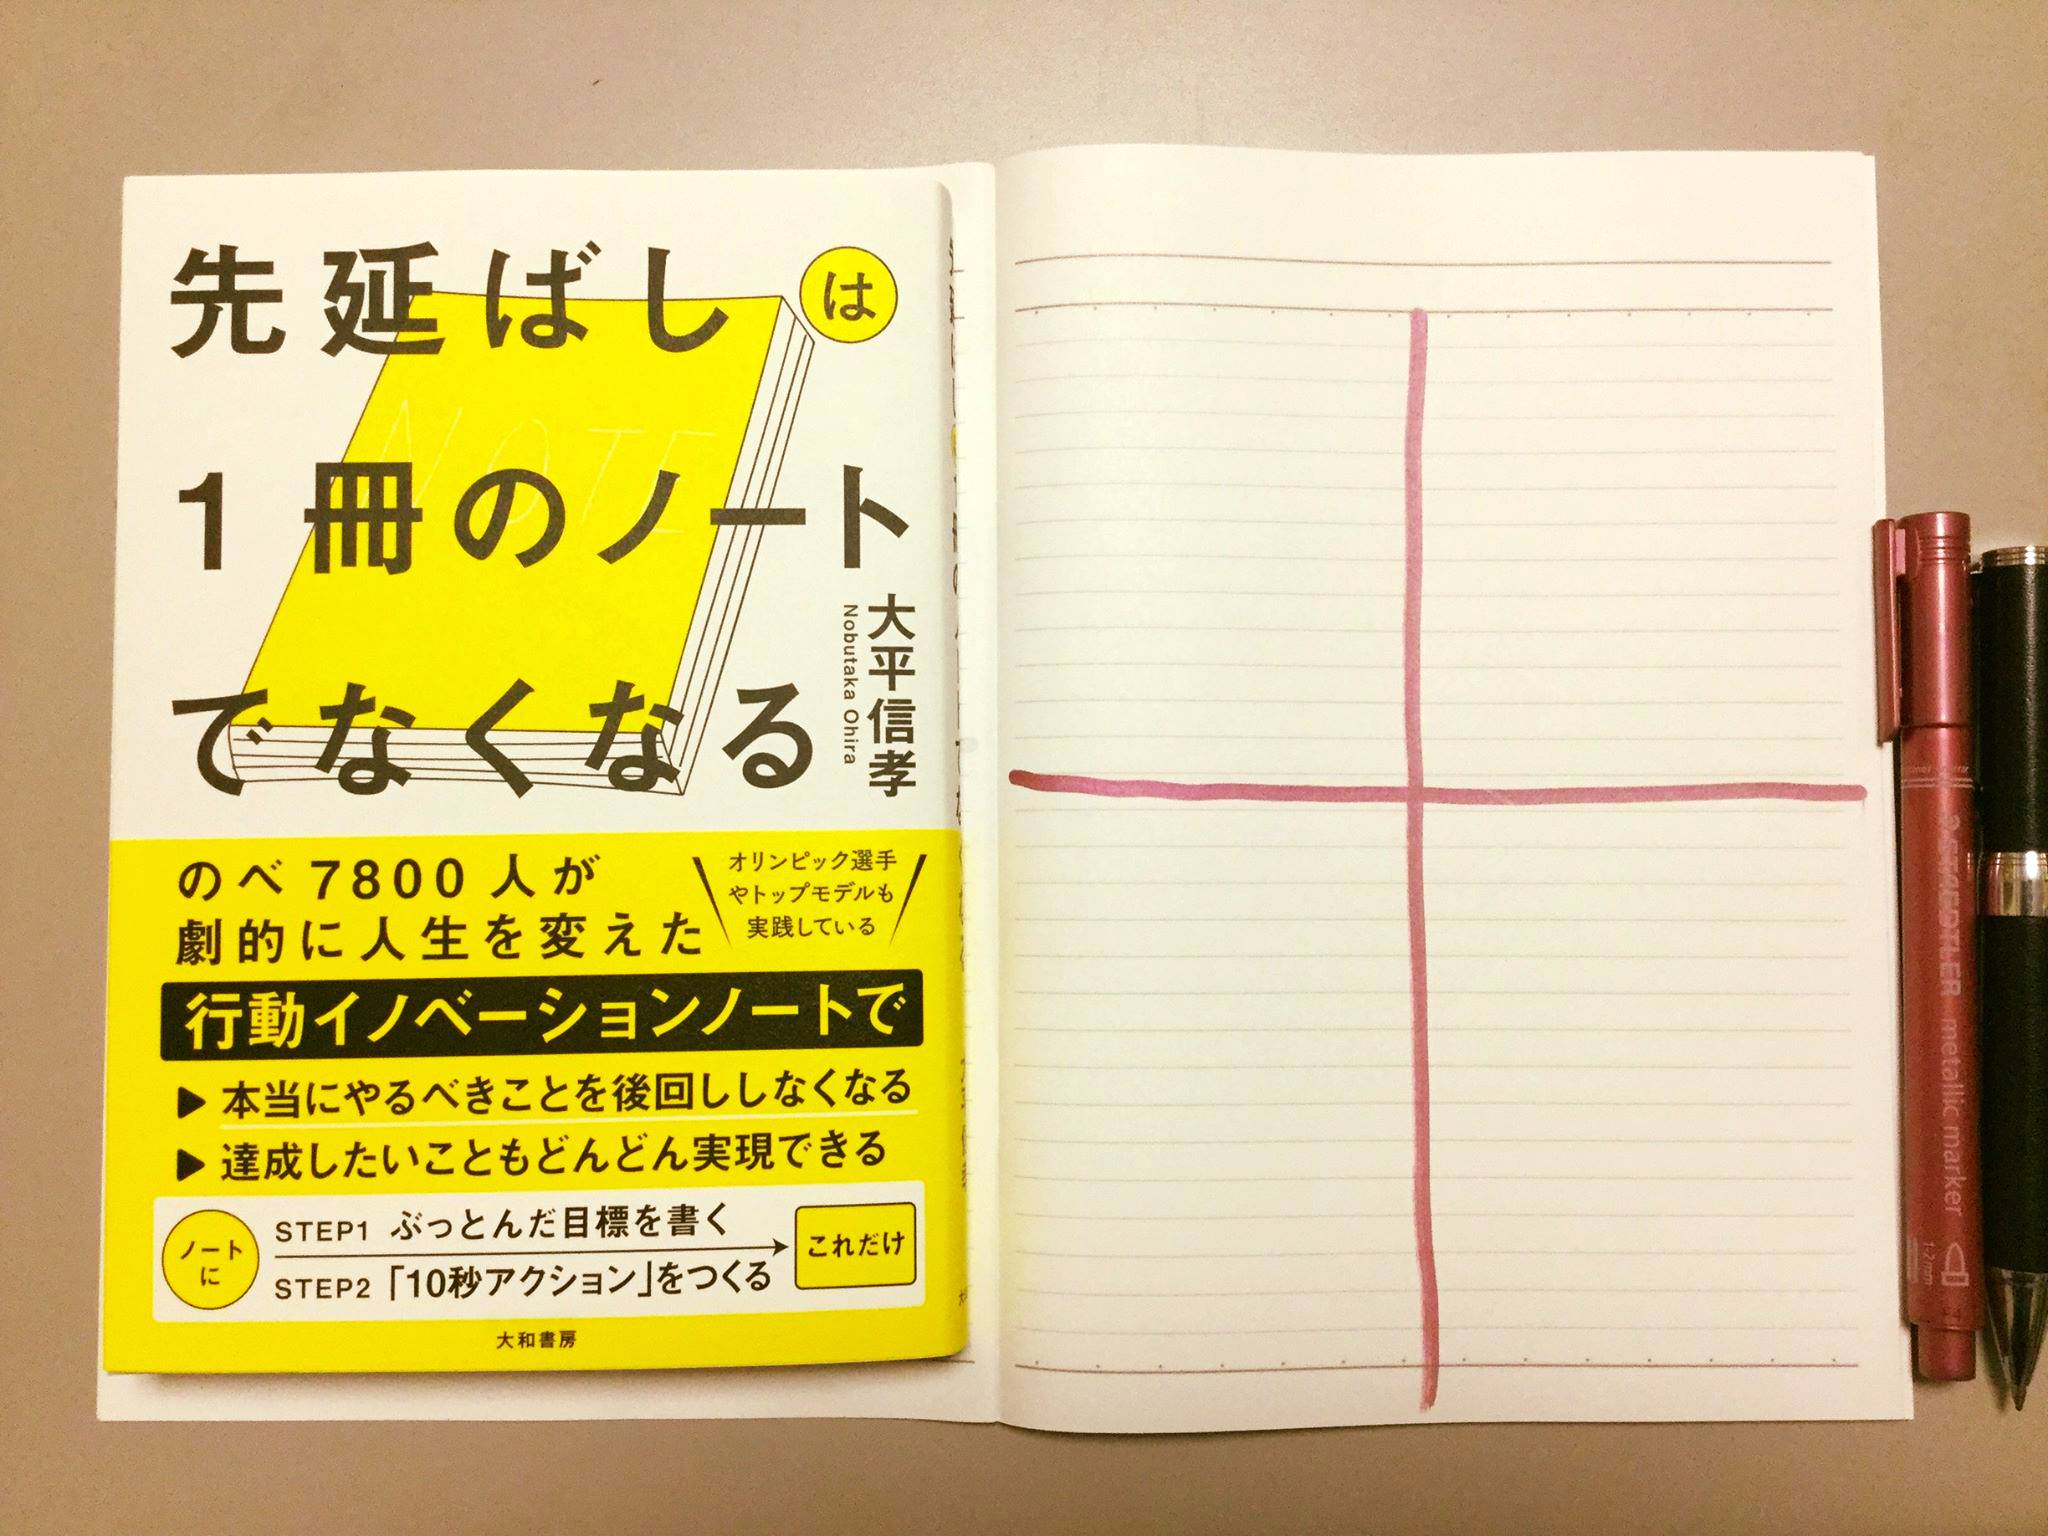 先延ばしは
NOTE
1冊のノート
でなくなる
大平信孝
Nobutaka Ohira
のべ7800人が
劇的に人生を変えた
オリンピック選手
やトップモデルも
実践している
行動イノベーションノートで
▶本当にやるべきことを後回ししなくなる
▶達成したいこともどんどん実現できる
ノート
に
STEP1 ぶっとんだ目標を書く
STEP2 「10秒アクション」をつくる
これだけ
大和書房
STAEDTLER metallic marker
1-2mm